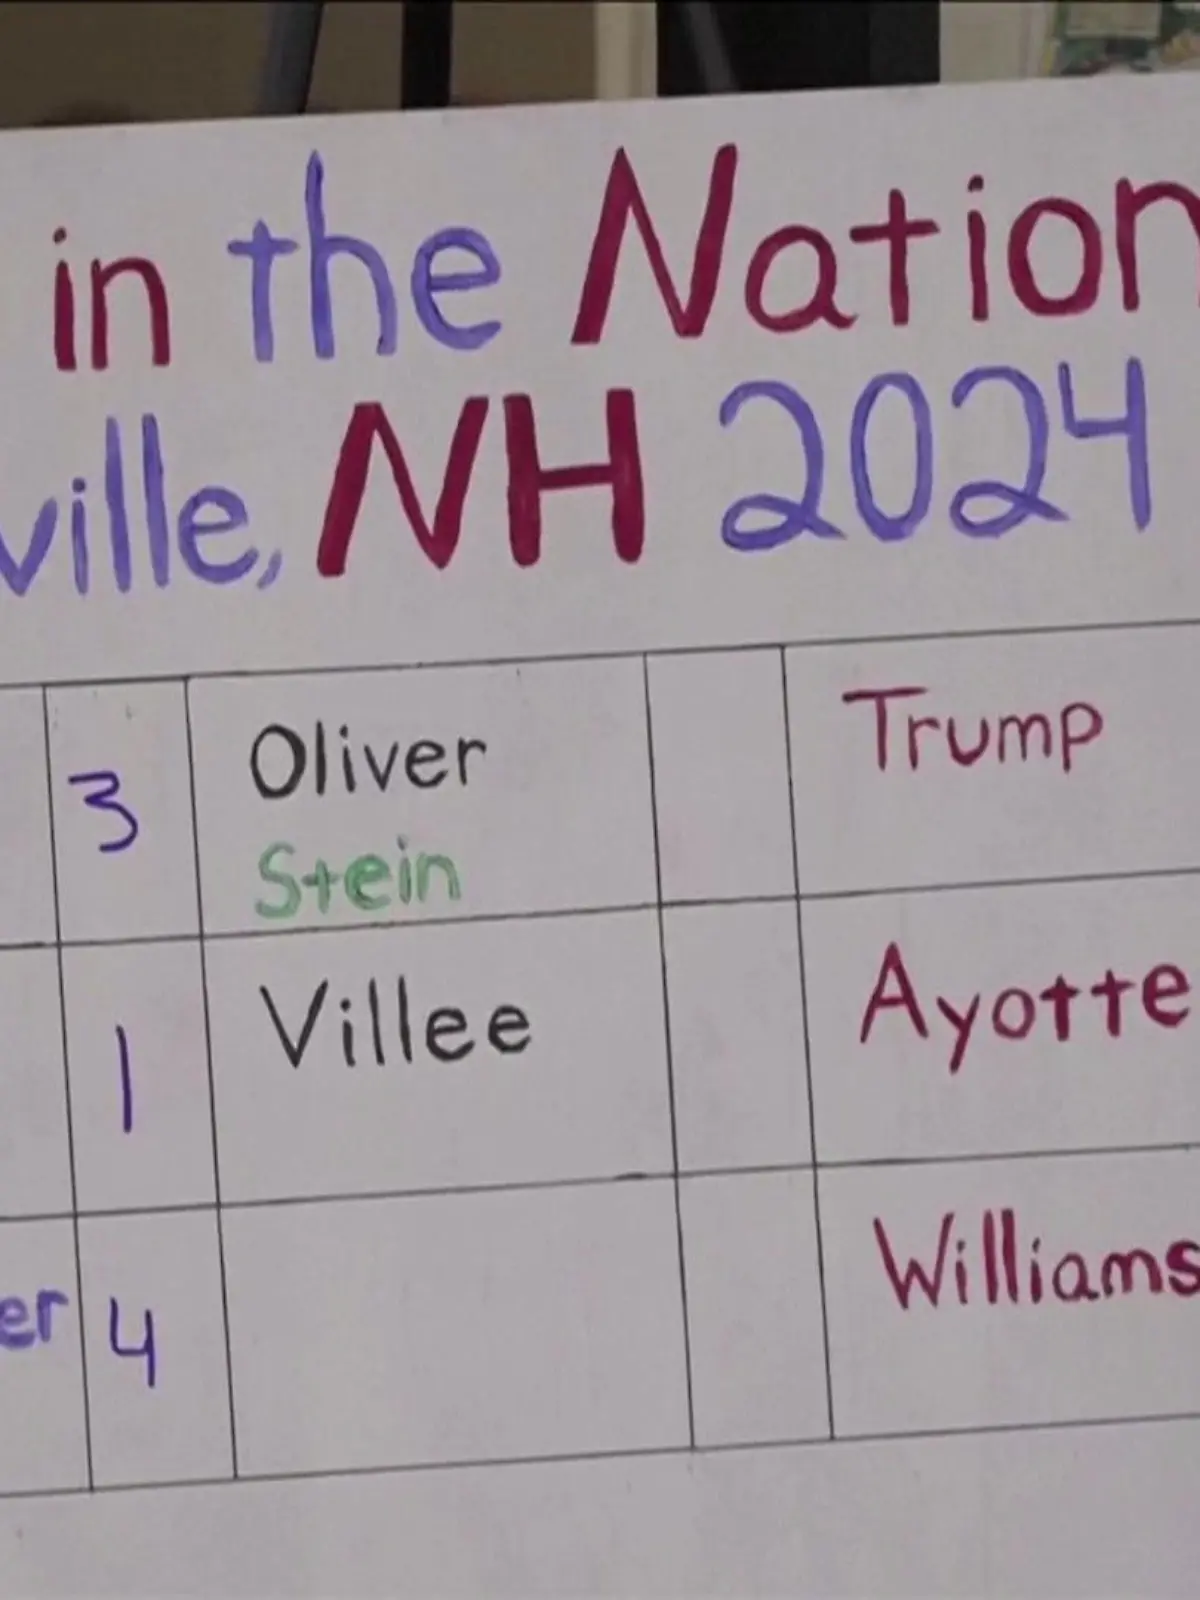 in the Nation
ville, NH 2024
3 Oliver Trump
Stein
1 Villee Ayotte
er 4 Williams